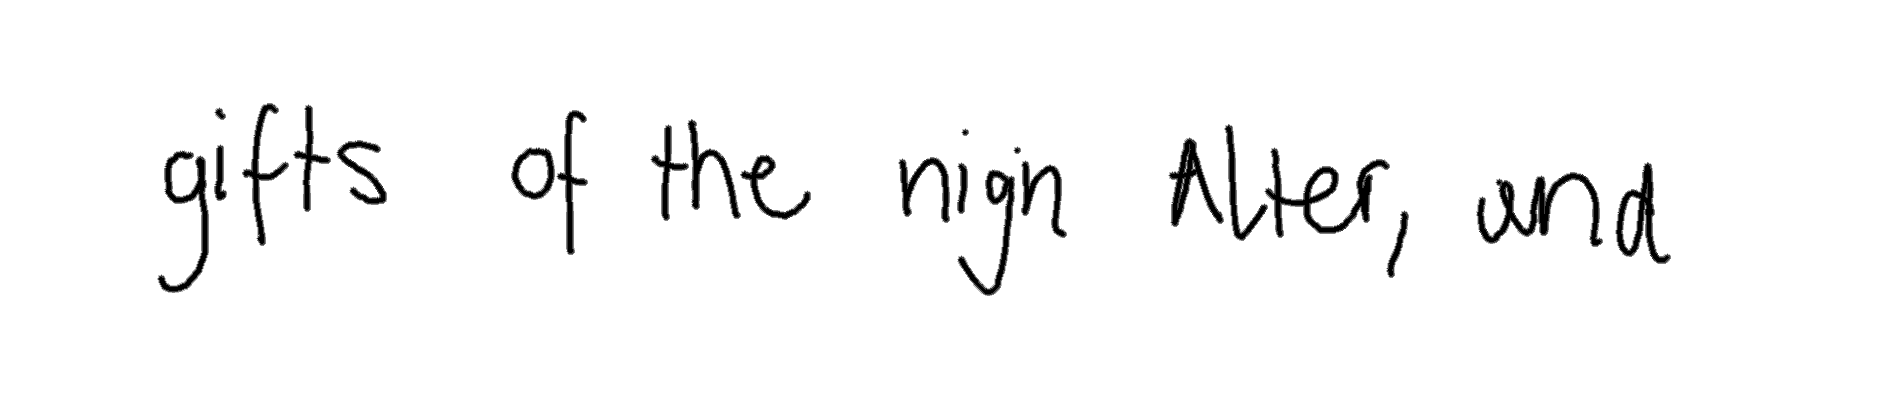 gifts of the nign Alter, and